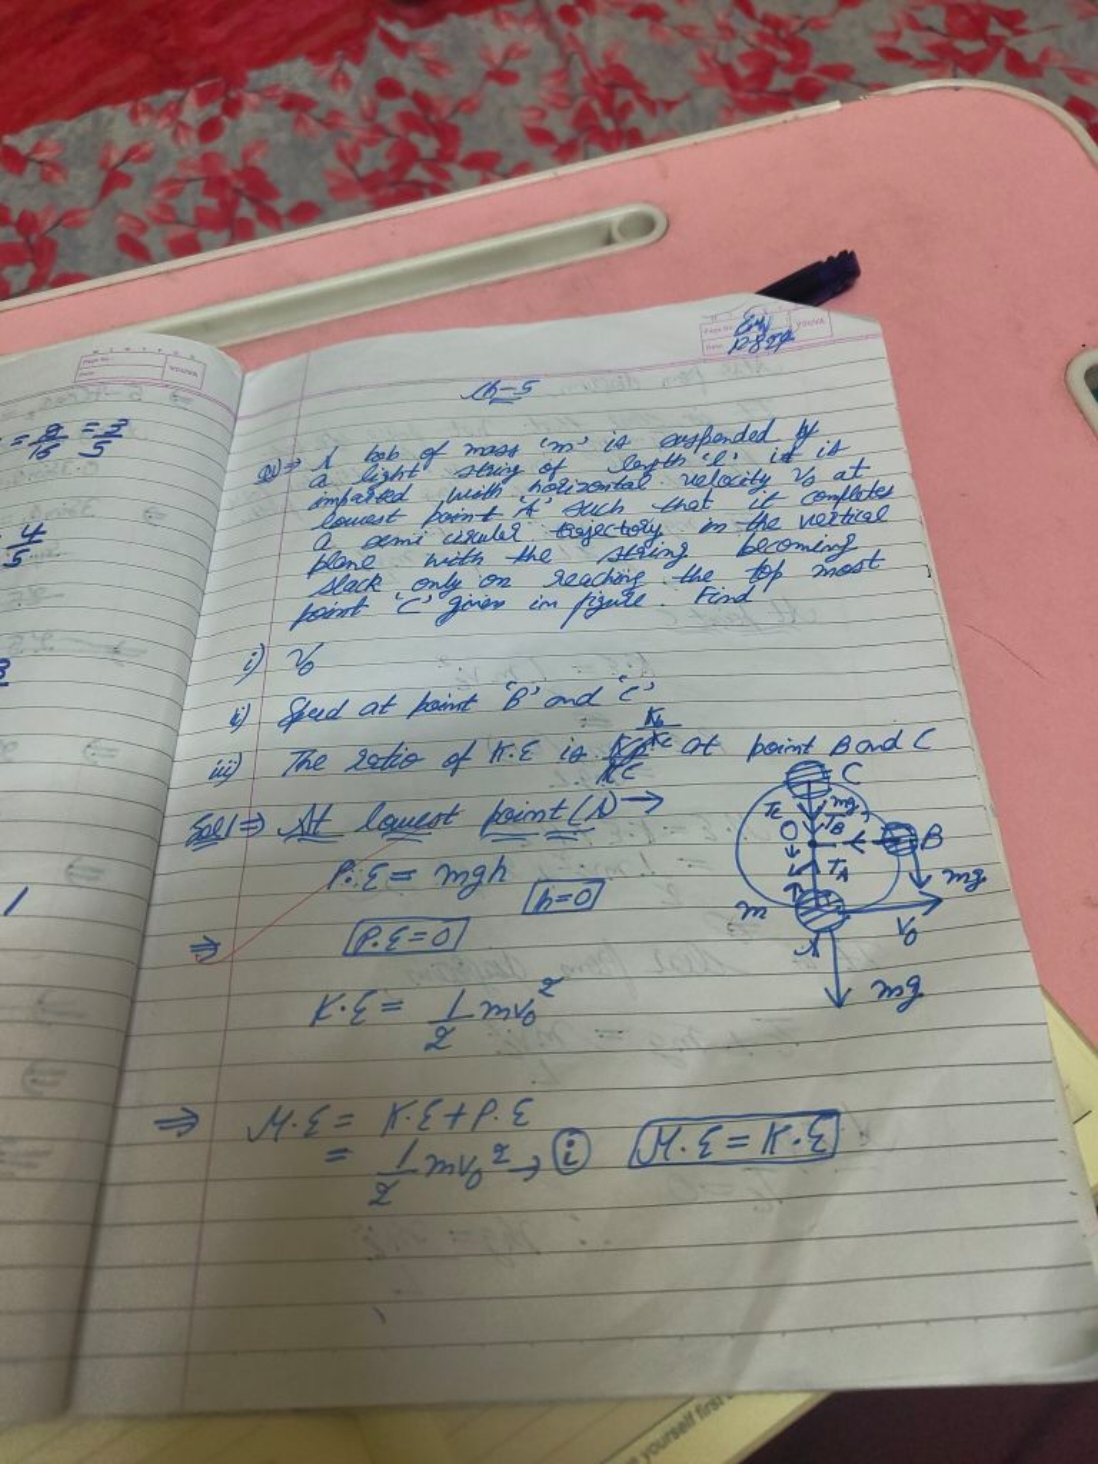 = 9/15 = 3/5
4/5
3
1
Page No.
Date:
YOUVA
Page No.
Date:
YOUVA
Ch-5
Q1)⇒ A bob of mass 'm' is suspended by
a light string of length 'l' it is
imparted with horizontal velocity V₀ at
lowest point 'A' such that it completes
a semi circular trajectory in the vertical
plane with the string becoming
slack only on reaching the top most
point 'C' given in figure. Find
i) V₀
ii) Speed at point 'B' and 'C'
iii) The ratio of K.E is at point B and C
Sol⇒ At lowest point (A) →
P.E = mgh
h=0
⇒ P.E=0
K.E = 1/2 mv₀²
⇒ M.E = K.E + P.E
= 1/2 mv₀² → (i) M.E = K.E
C
Tc mg
O TB B
TA mg
m V₀
A
mg
yourself first